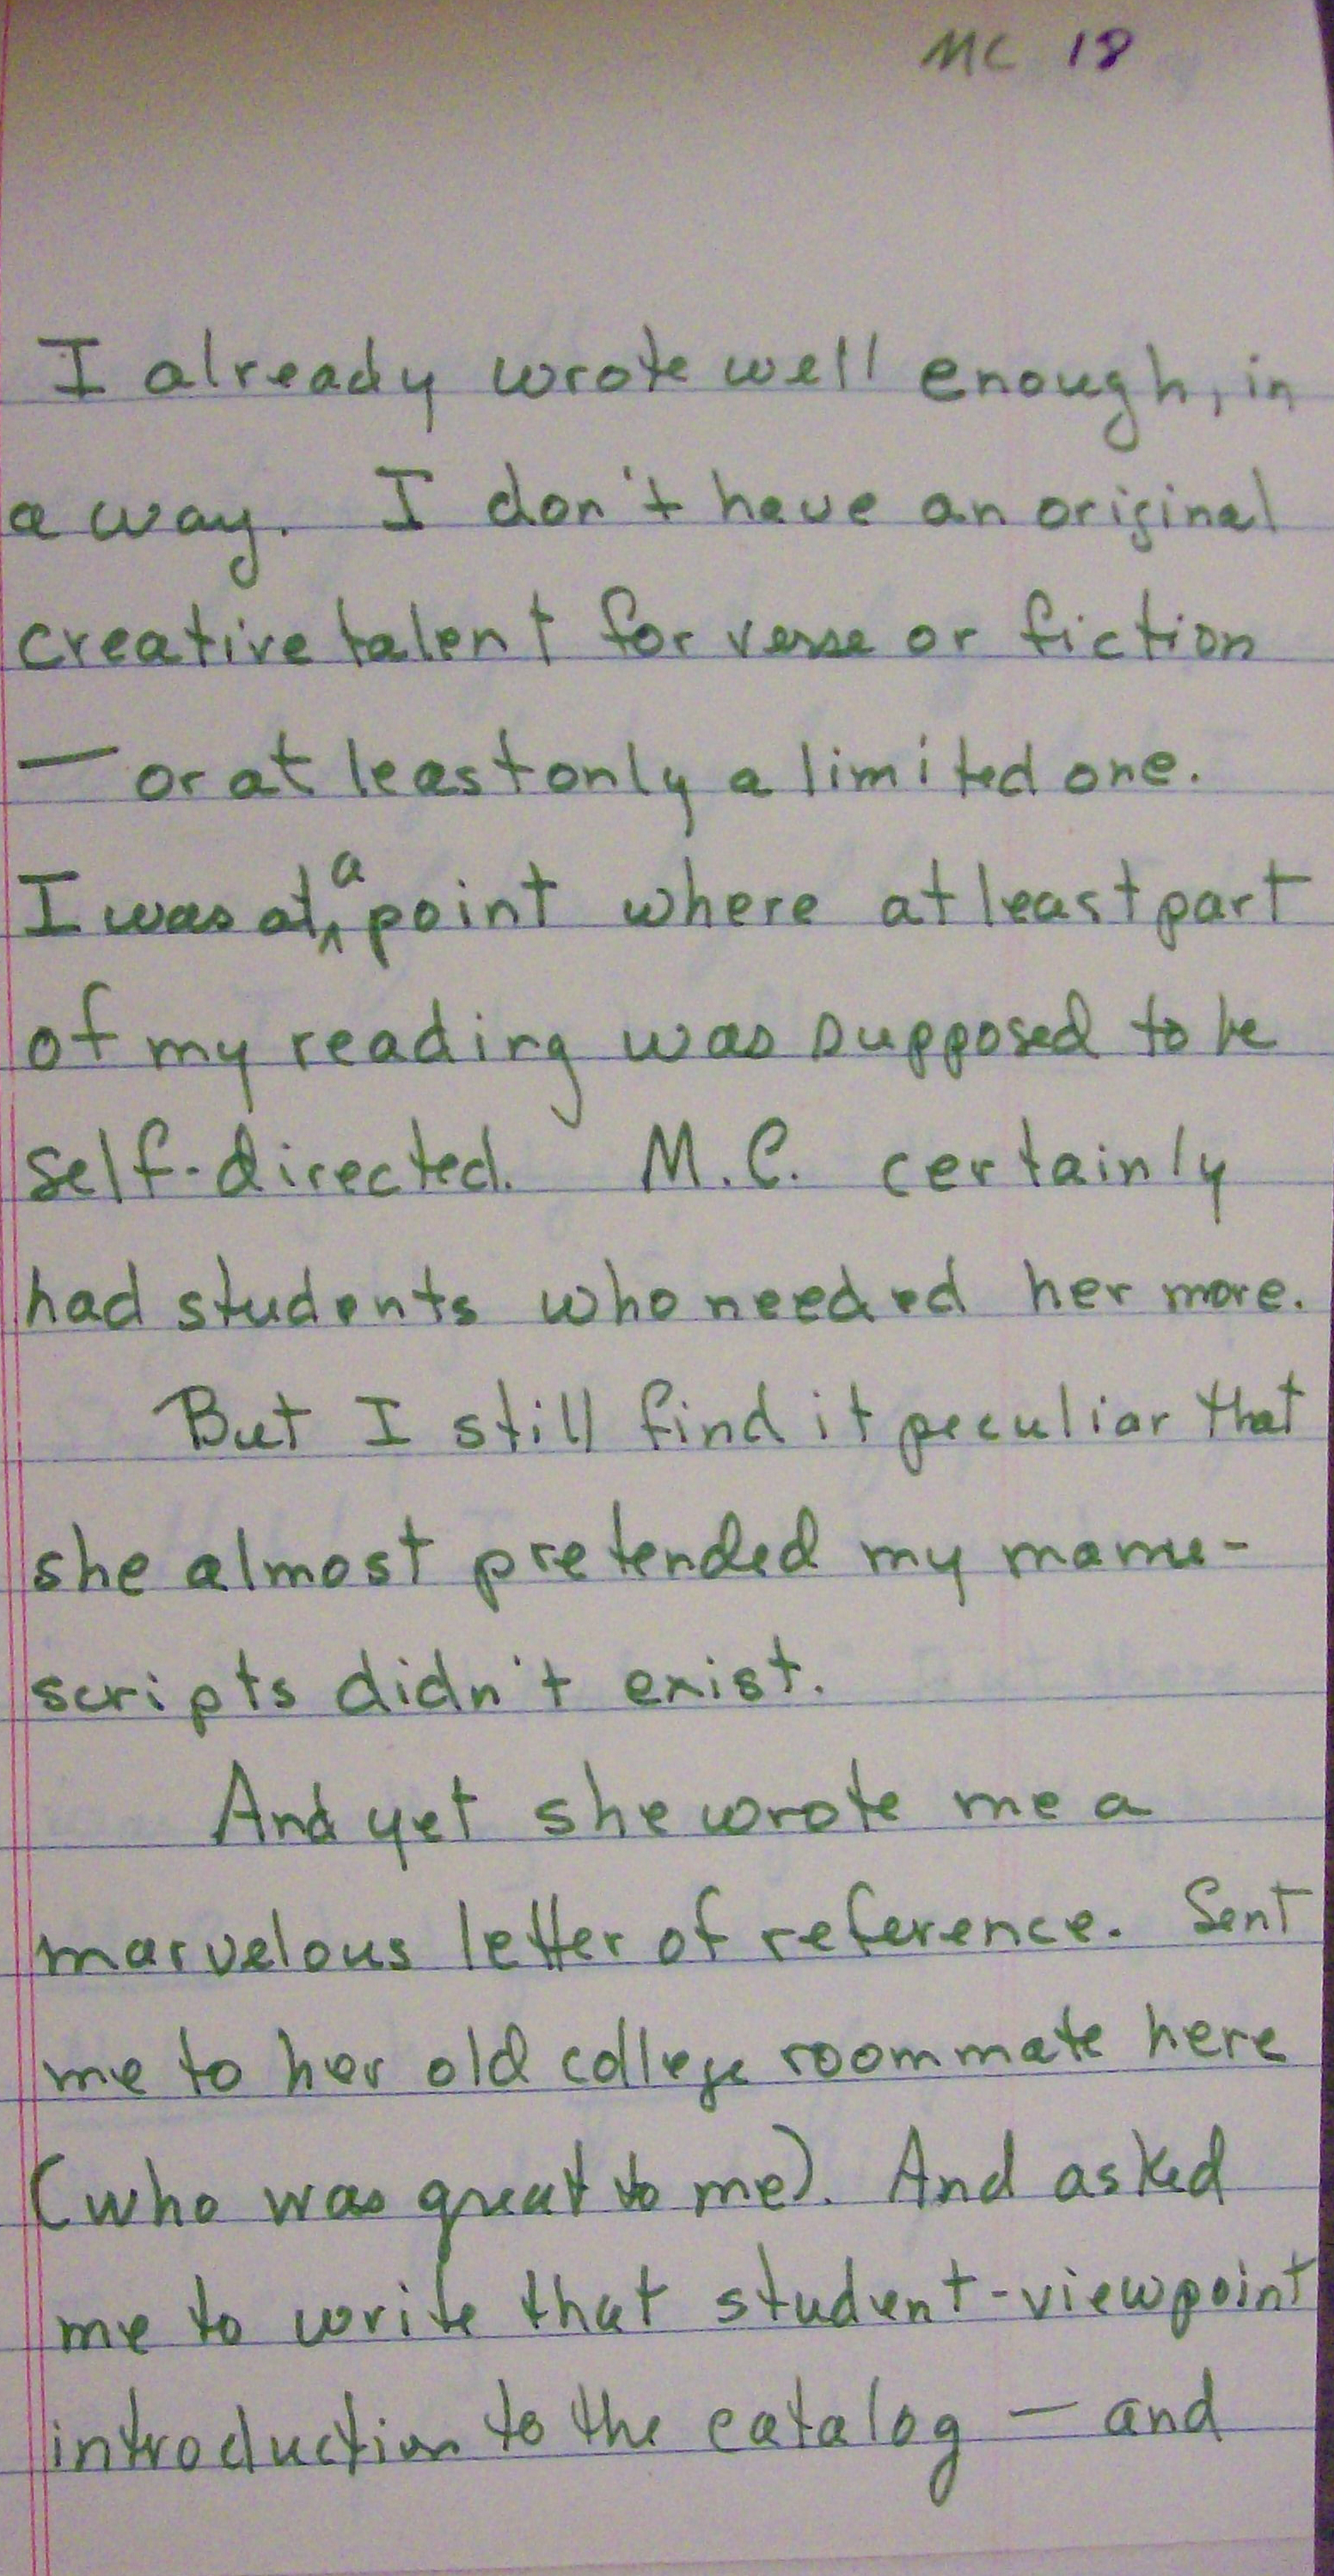 MC 18
I already wrote well enough, in
a way. I don't have an original
creative talent for verse or fiction
— or at least only a limited one.
I was at a point where at least part
of my reading was supposed to be
self-directed. M.C. certainly
had students who needed her more.
But I still find it peculiar that
she almost pretended my manu-
scripts didn't exist.
And yet she wrote me a
marvelous letter of reference. Sent
me to her old college roommate here
(who was great to me). And asked
me to write that student-viewpoint
introduction to the catalog — and